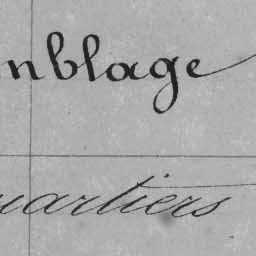 mblage
uartiers